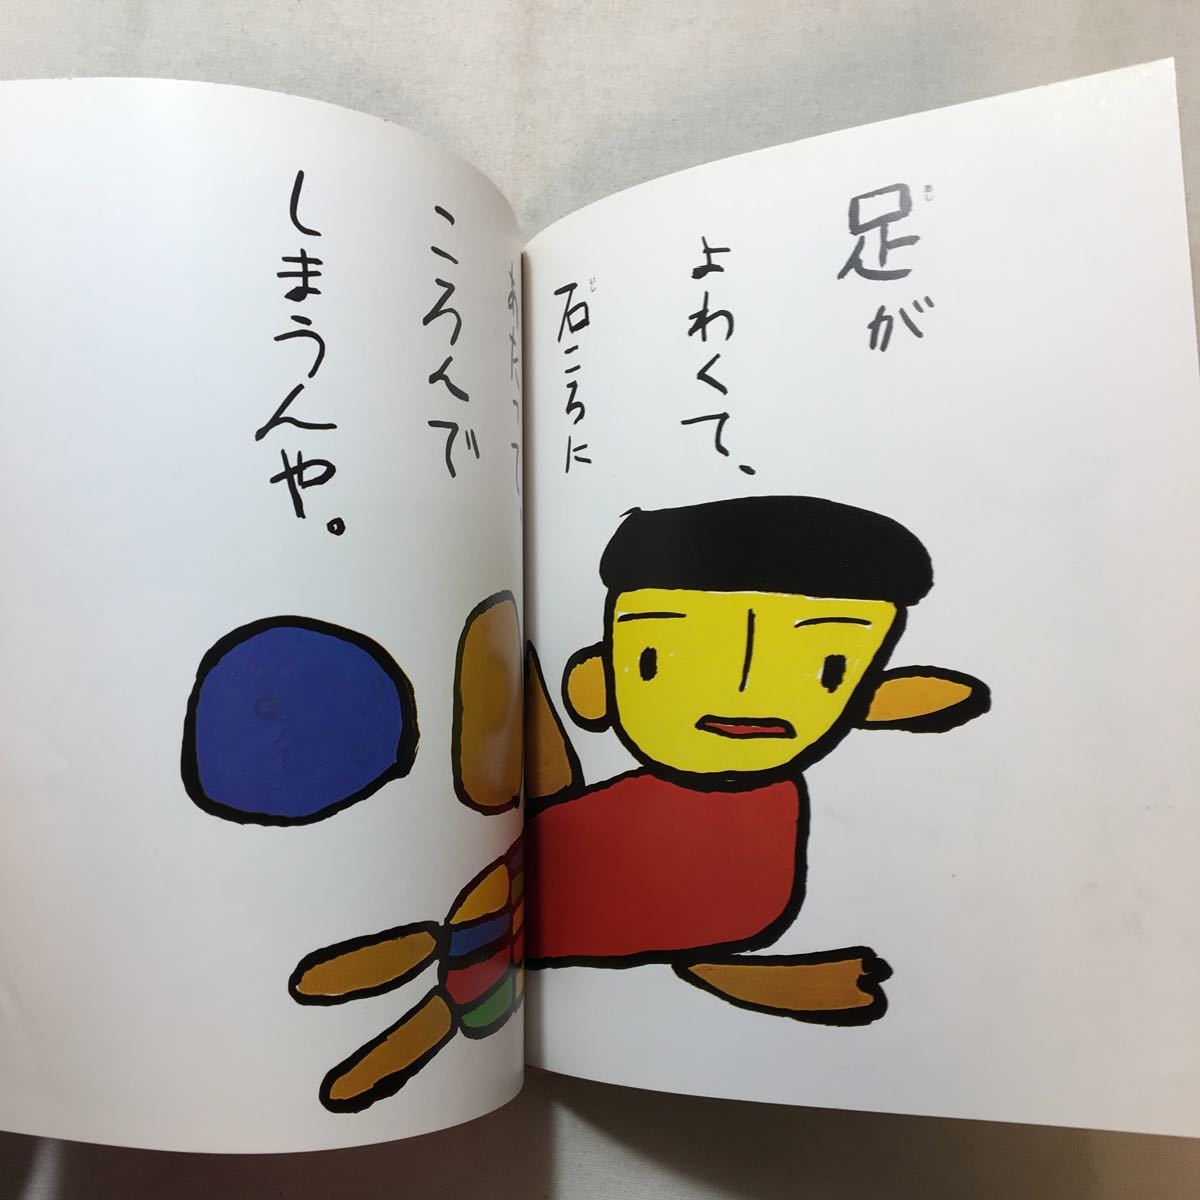 足が
あし
よわくて、
石ころに
いし
あたって、
ころんで
しまうんや。